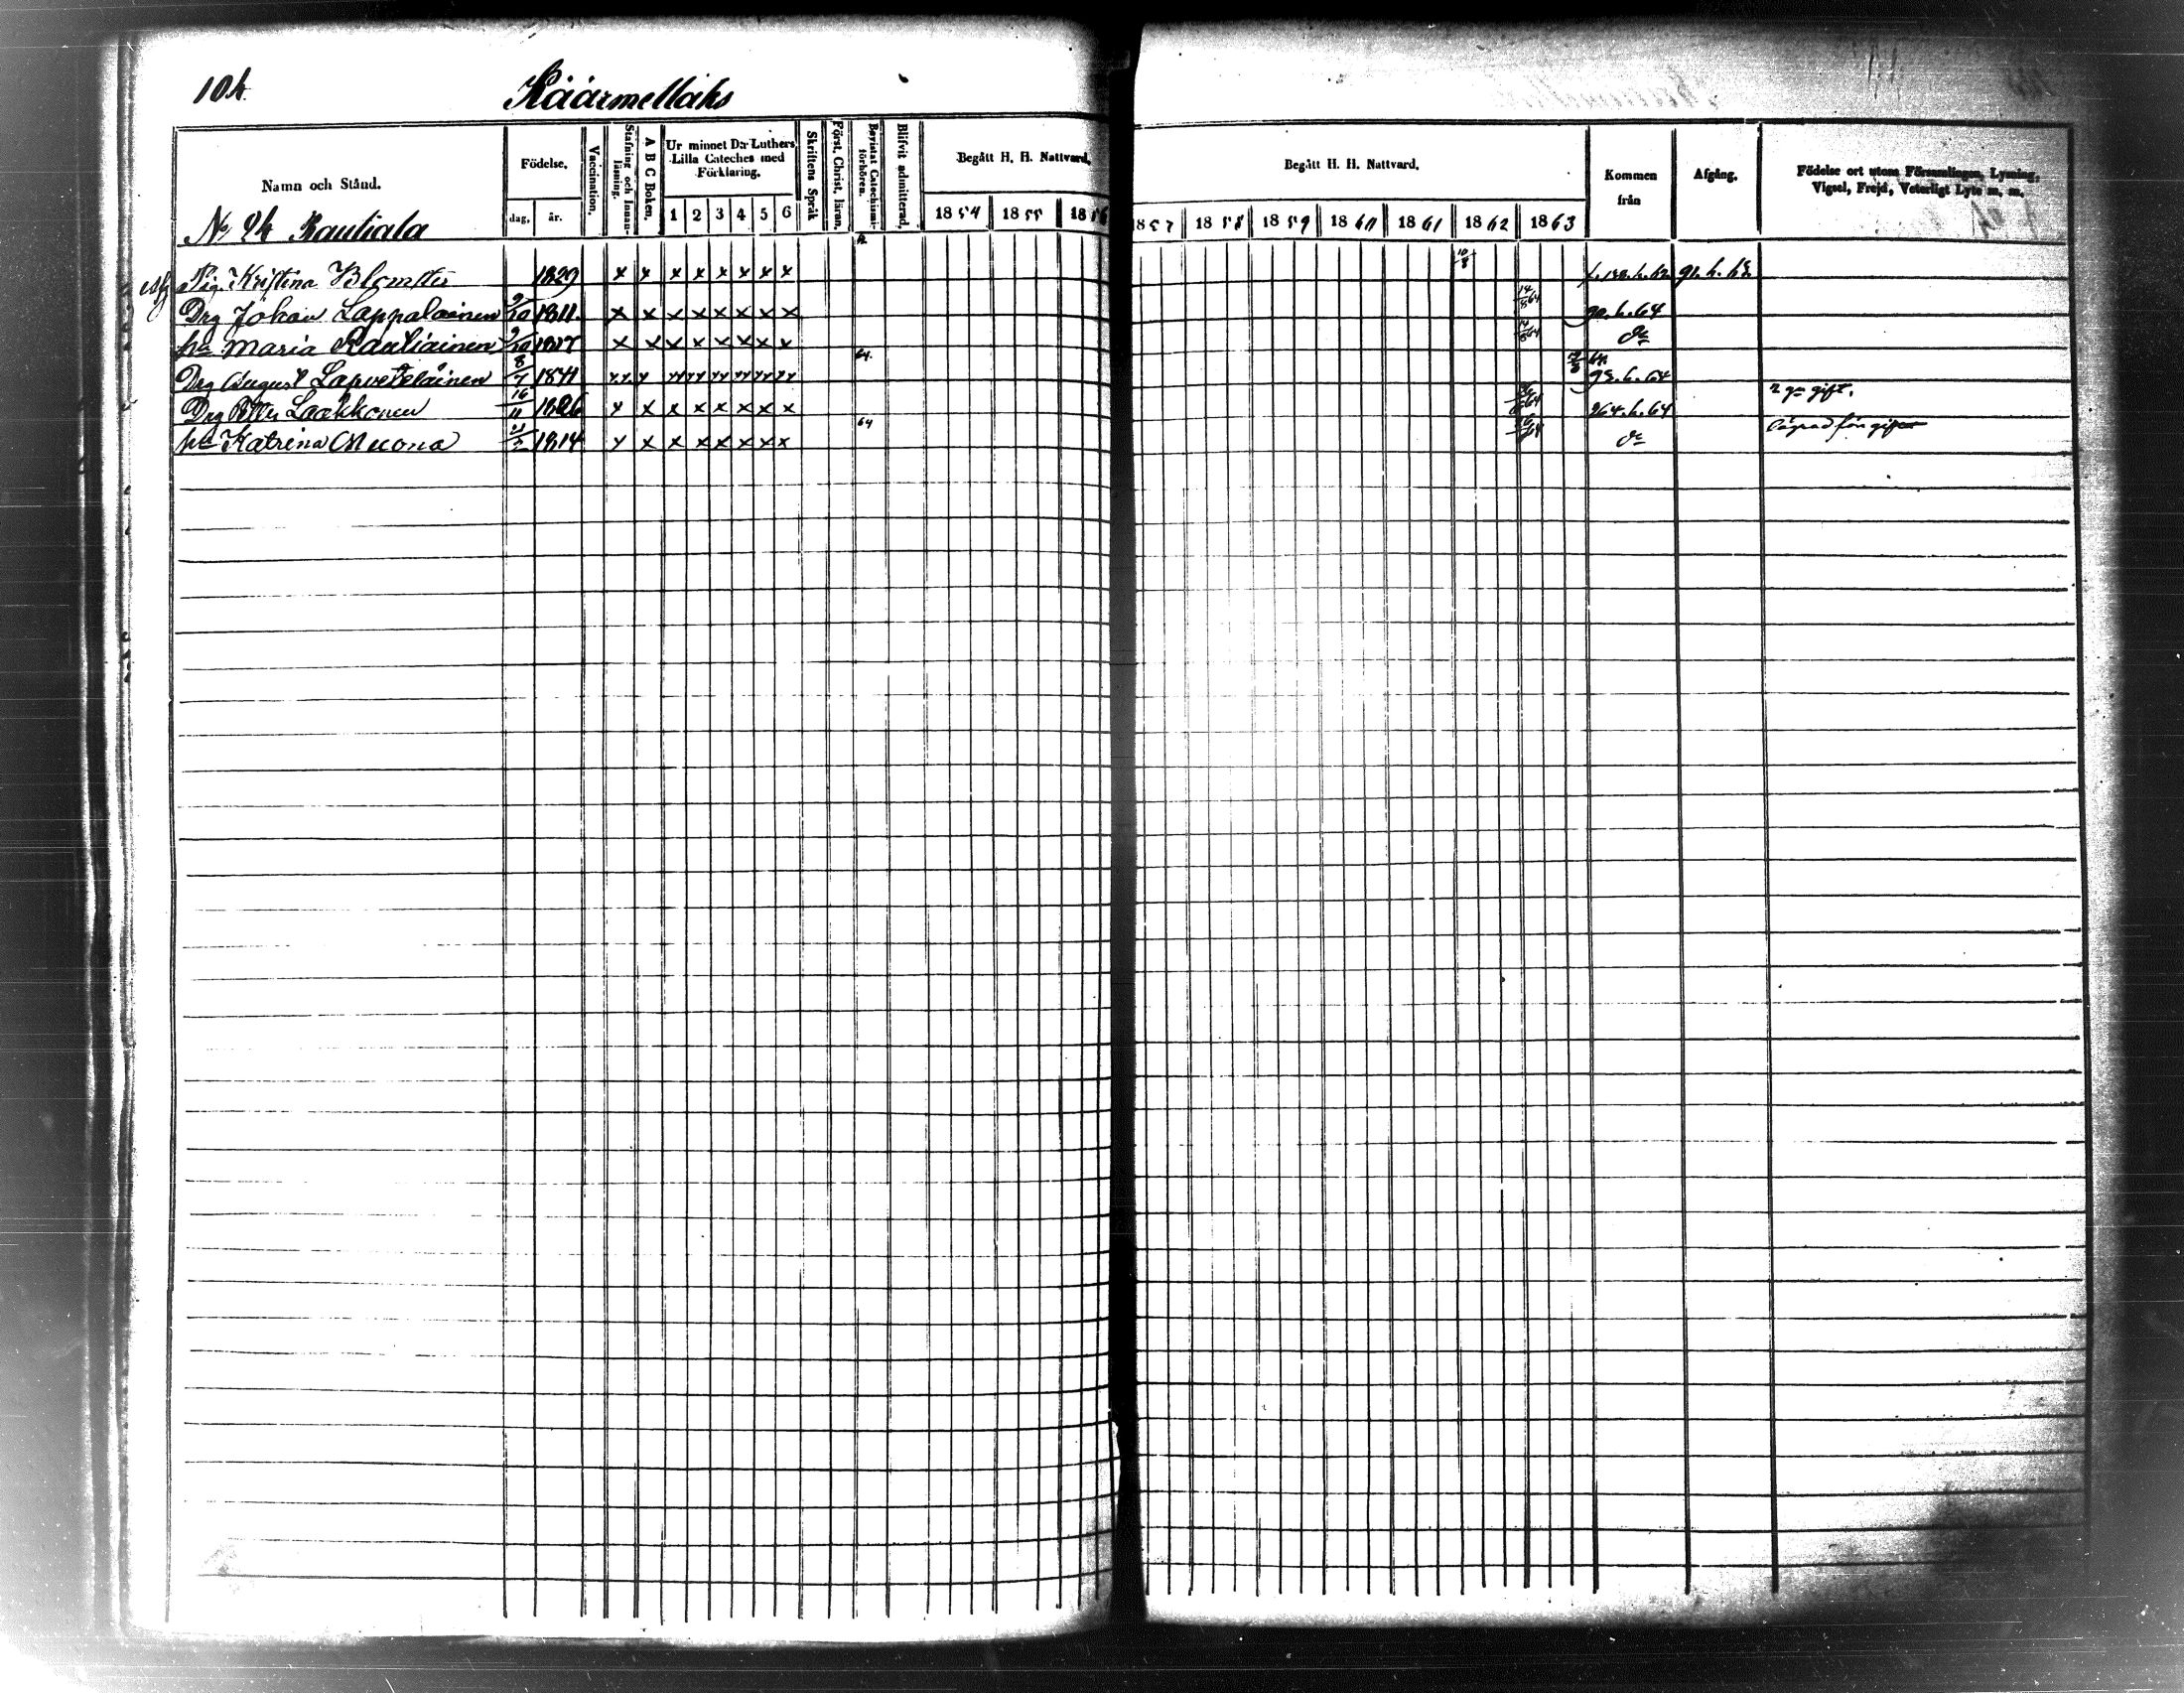 104 Käärmellaks
Namn och Stånd.
Födelse.
dag, år.
Vaccination.
Stafning och Innanläsning.
A B C Boken.
Ur minnet D:r Luthers Lilla Cateches med Förklaring.
1 2 3 4 5 6
Skriftens Språk
Först. Christ. läran.
Bevistat Catechismi-förhören.
Blifvit admitterad.
Begått H. H. Nattvard.
1854 1855 1856
Begått H. H. Nattvard.
1857 1858 1859 1860 1861 1862 1863
Kommen från
Afgång.
Födelse ort utom Församlingen, Lysning, Vigsel, Frejd, Veterligt Lyte m. m.
No 24 Rautiala
Pig. Kristina Blomster 1829 x x x x x x x x 10/8
Drg Johan Lappalainen 9/10 1811. x x x x x x x x 14/8 64 90.h.64
h:a Maria Rautiainen 9/10 x x x x x x x x 14/8 64 do
Drg August Lapveteläinen 8/7 1841 64. 93.h.64
Drg Petter Laakkonen 16/11 1826 x x x x x x x x 264.h.64 2 g gift.
h:a Katrina Muona 1814 x x x x x x x x 64 do